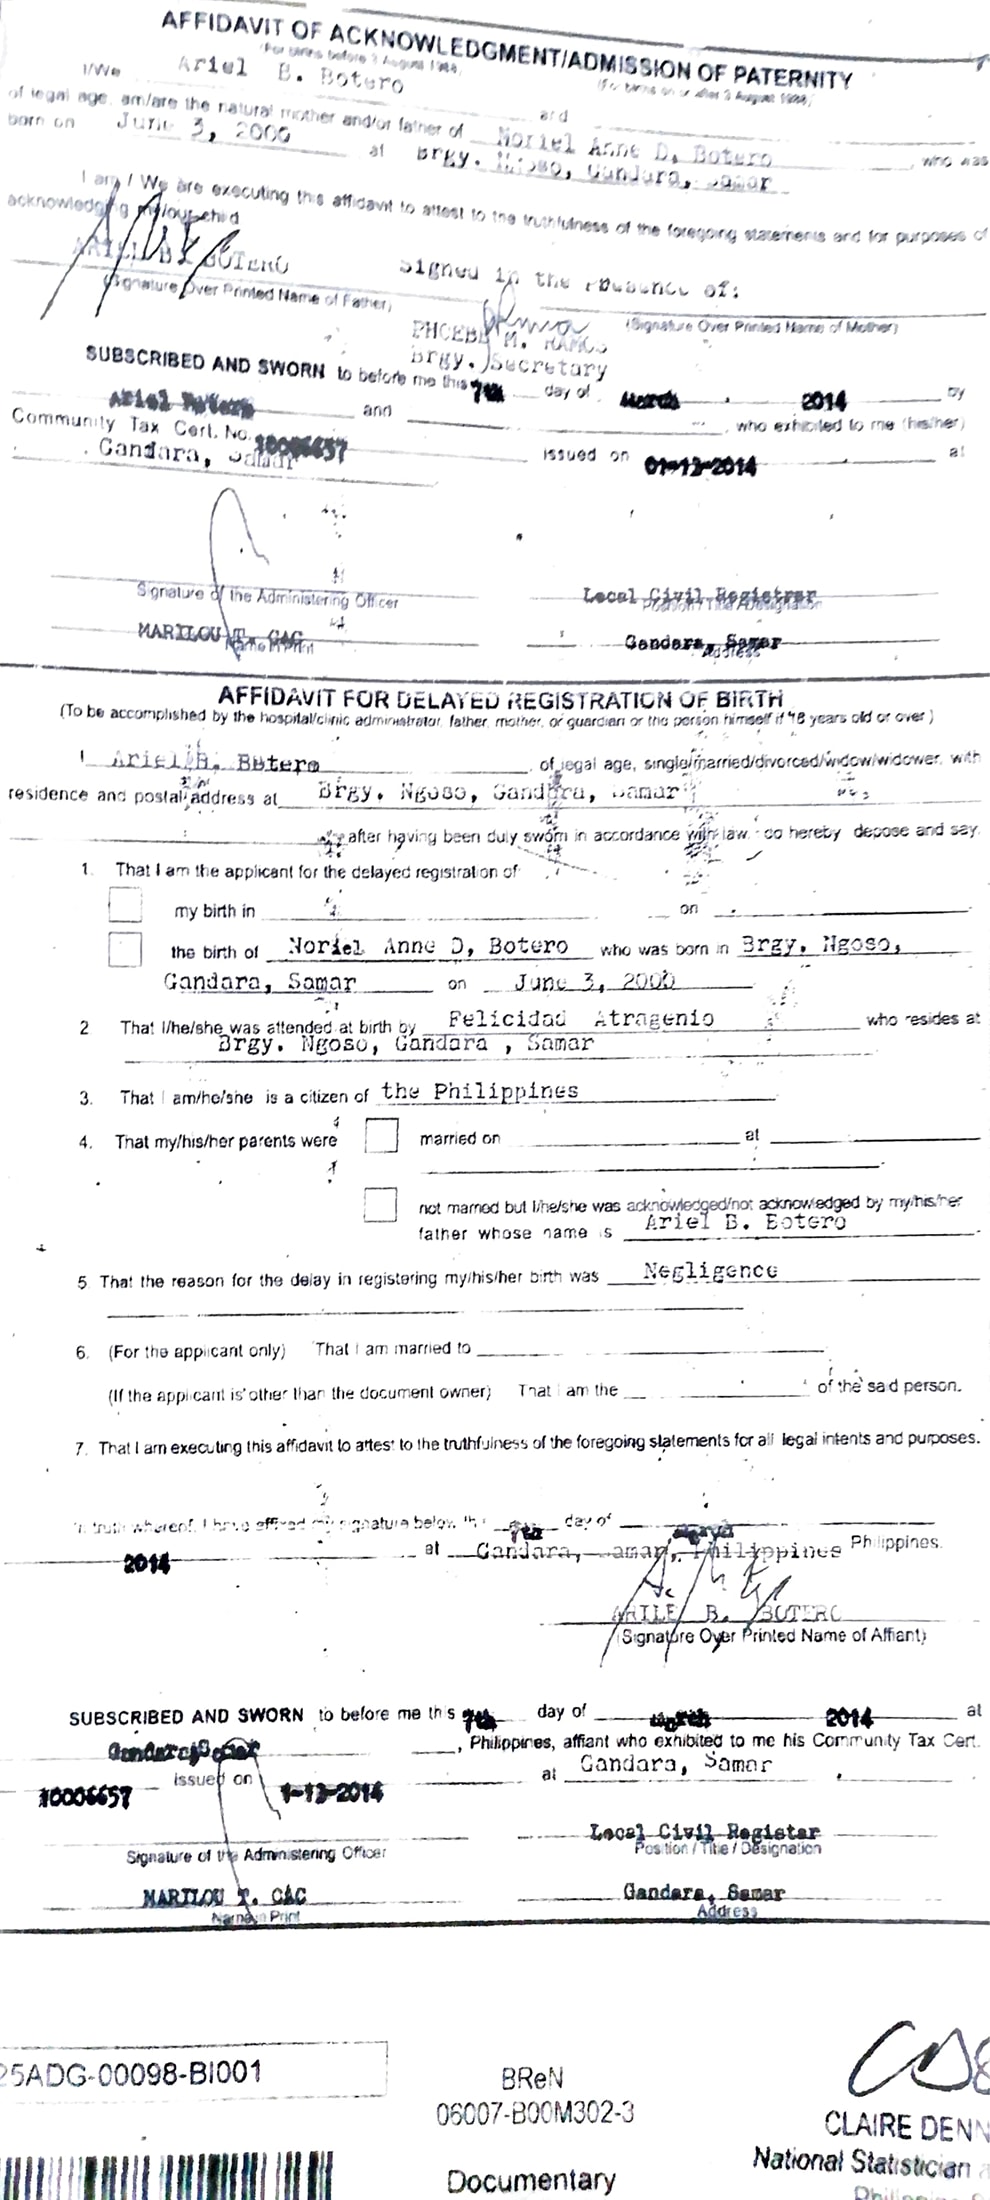 AFFIDAVIT OF ACKNOWLEDGMENT/ADMISSION OF PATERNITY
(For births before 3 August 1988) (For births on or after 3 August 1988)
I/We Ariel B. Botero and
of legal age, am/are the natural mother and/or father of Noriel Anne D, Botero , who was
born on June 3, 2000 at Brgy. Ngoso, Gandara, Samar
I am / We are executing this affidavit to attest to the truthfulness of the foregoing statements and for purposes of
acknowledging my/our child
BOTERO Signed in the Presence of:
(Signature Over Printed Name of Father) (Signature Over Printed Name of Mother)
PHOEBE M. RAMOS
Brgy. Secretary
SUBSCRIBED AND SWORN to before me this 7th day of March 2014 by
Ariel Botero and , who exhibited to me (his/her)
Community Tax Cert. No. 10006657 issued on 01-13-2014 at
Gandara, Samar
Signature of the Administering Officer Local Civil Registrar
Position / Title / Designation
MARILOU T. CAC Gandara, Samar
Name in Print Address
AFFIDAVIT FOR DELAYED REGISTRATION OF BIRTH
(To be accomplished by the hospital/clinic administrator, father, mother, or guardian or the person himself if 18 years old or over )
I Ariel B. Botero , of legal age, single/married/divorced/widow/widower, with
residence and postal address at Brgy. Ngoso, Gandara, Samar
after having been duly sworn in accordance with law, do hereby depose and say
1. That I am the applicant for the delayed registration of
my birth in on
the birth of Noriel Anne D, Botero who was born in Brgy. Ngoso,
Gandara, Samar on June 3, 2000
2 That I/he/she was attended at birth by Felicidad Atragenio who resides at
Brgy. Ngoso, Gandara , Samar
3. That I am/he/she is a citizen of the Philippines
4. That my/his/her parents were married on at
not married but I/he/she was acknowledged/not acknowledged by my/his/her
father whose name is Ariel B. Botero
5. That the reason for the delay in registering my/his/her birth was Negligence
6. (For the applicant only) That I am married to
(If the applicant is other than the document owner) That I am the of the said person.
7. That I am executing this affidavit to attest to the truthfulness of the foregoing statements for all legal intents and purposes.
In truth whereof, I have affixed my signature below this 7th day of March
2014 at Gandara, Samar, Philippines Philippines.
ARILE B. BOTERO
(Signature Over Printed Name of Affiant)
SUBSCRIBED AND SWORN to before me this 7th day of March 2014 at
Gandara, Samar , Philippines, affiant who exhibited to me his Community Tax Cert.
10006657 issued on 1-13-2014 at Gandara, Samar
Signature of the Administering Officer Local Civil Registar
Position / Title / Designation
MARILOU T. CAC Gandara, Samar
Name in Print Address
25ADG-00098-BI001
BReN
06007-B00M302-3
CLAIRE DENN
National Statistician a
Documentary